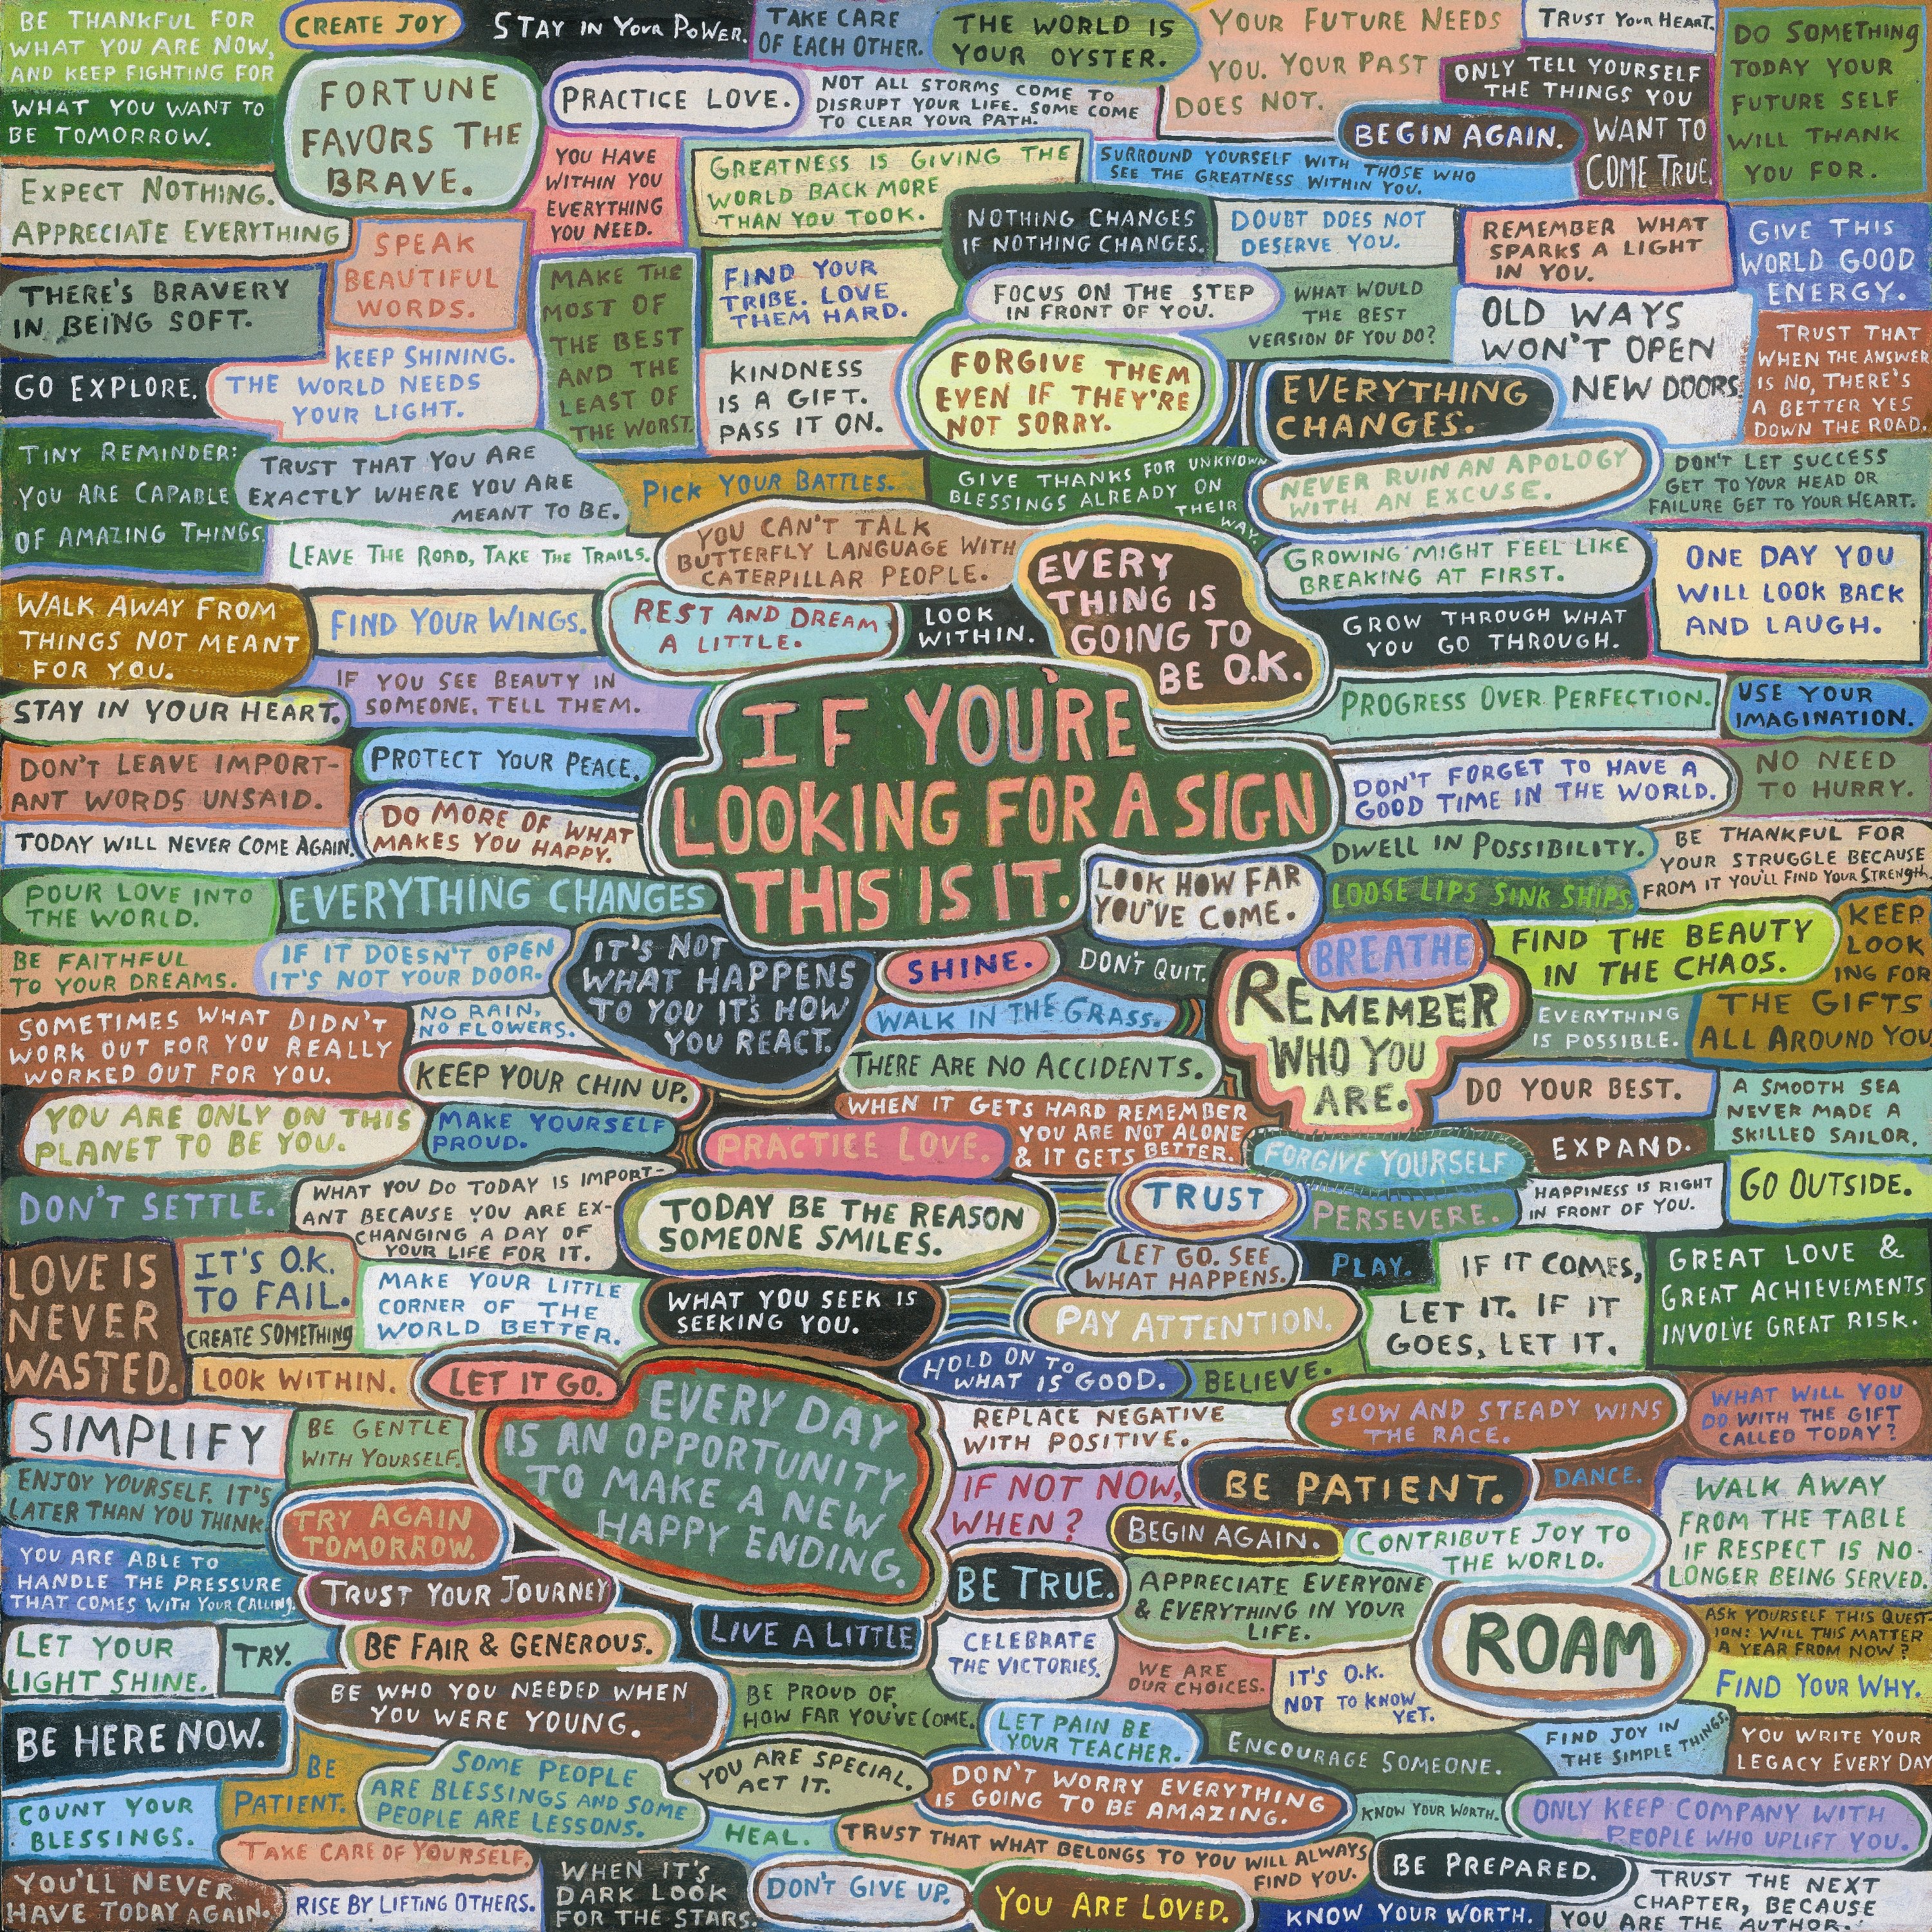 BE THANKFUL FOR
WHAT YOU ARE NOW,
AND KEEP FIGHTING FOR
WHAT YOU WANT TO
BE TOMORROW.
CREATE JOY
STAY IN YOUR POWER.
TAKE CARE
OF EACH OTHER.
THE WORLD IS
YOUR OYSTER.
YOUR FUTURE NEEDS
YOU. YOUR PAST
DOES NOT.
TRUST YOUR HEART.
DO SOMETHING
TODAY YOUR
FUTURE SELF
WILL THANK
YOU FOR.
FORTUNE
FAVORS THE
BRAVE.
PRACTICE LOVE.
NOT ALL STORMS COME TO
DISRUPT YOUR LIFE. SOME COME
TO CLEAR YOUR PATH.
ONLY TELL YOURSELF
THE THINGS YOU
WANT TO
COME TRUE.
BEGIN AGAIN.
EXPECT NOTHING.
APPRECIATE EVERYTHING
YOU HAVE
WITHIN YOU
EVERYTHING
YOU NEED.
GREATNESS IS GIVING THE
WORLD BACK MORE
THAN YOU TOOK.
SURROUND YOURSELF WITH THOSE WHO
SEE THE GREATNESS WITHIN YOU.
SPEAK
BEAUTIFUL
WORDS.
NOTHING CHANGES
IF NOTHING CHANGES.
DOUBT DOES NOT
DESERVE YOU.
REMEMBER WHAT
SPARKS A LIGHT
IN YOU.
GIVE THIS
WORLD GOOD
ENERGY.
THERE'S BRAVERY
IN BEING SOFT.
MAKE THE
MOST OF
THE BEST
AND THE
LEAST OF
THE WORST.
FIND YOUR
TRIBE. LOVE
THEM HARD.
FOCUS ON THE STEP
IN FRONT OF YOU.
WHAT WOULD
THE BEST
VERSION OF YOU DO?
OLD WAYS
WON'T OPEN
NEW DOORS.
TRUST THAT
WHEN THE ANSWER
IS NO, THERE'S
A BETTER YES
DOWN THE ROAD.
GO EXPLORE.
KEEP SHINING.
THE WORLD NEEDS
YOUR LIGHT.
KINDNESS
IS A GIFT.
PASS IT ON.
FORGIVE THEM
EVEN IF THEY'RE
NOT SORRY.
EVERYTHING
CHANGES.
TINY REMINDER:
YOU ARE CAPABLE
OF AMAZING THINGS.
TRUST THAT YOU ARE
EXACTLY WHERE YOU ARE
MEANT TO BE.
PICK YOUR BATTLES.
GIVE THANKS FOR UNKNOWN
BLESSINGS ALREADY ON
THEIR
WAY.
NEVER RUIN AN APOLOGY
WITH AN EXCUSE.
DON'T LET SUCCESS
GET TO YOUR HEAD OR
FAILURE GET TO YOUR HEART.
LEAVE THE ROAD, TAKE THE TRAILS.
YOU CAN'T TALK
BUTTERFLY LANGUAGE WITH
CATERPILLAR PEOPLE.
EVERY
THING IS
GOING TO
BE O.K.
GROWING MIGHT FEEL LIKE
BREAKING AT FIRST.
ONE DAY YOU
WILL LOOK BACK
AND LAUGH.
WALK AWAY FROM
THINGS NOT MEANT
FOR YOU.
FIND YOUR WINGS.
REST AND DREAM
A LITTLE.
LOOK
WITHIN.
GROW THROUGH WHAT
YOU GO THROUGH.
IF YOU SEE BEAUTY IN
SOMEONE, TELL THEM.
STAY IN YOUR HEART.
PROGRESS OVER PERFECTION.
USE YOUR
IMAGINATION.
IF YOU'RE
LOOKING FOR A SIGN
THIS IS IT.
DON'T LEAVE IMPORT-
ANT WORDS UNSAID.
PROTECT YOUR PEACE.
DON'T FORGET TO HAVE A
GOOD TIME IN THE WORLD.
NO NEED
TO HURRY.
TODAY WILL NEVER COME AGAIN.
DO MORE OF WHAT
MAKES YOU HAPPY.
DWELL IN POSSIBILITY.
BE THANKFUL FOR
YOUR STRUGGLE BECAUSE
FROM IT YOU'LL FIND YOUR STRENGTH.
POUR LOVE INTO
THE WORLD.
EVERYTHING CHANGES
LOOK HOW FAR
YOU'VE COME.
LOOSE LIPS SINK SHIPS.
BE FAITHFUL
TO YOUR DREAMS.
IF IT DOESN'T OPEN
IT'S NOT YOUR DOOR.
IT'S NOT
WHAT HAPPENS
TO YOU IT'S HOW
YOU REACT.
SHINE.
DON'T QUIT.
BREATHE
FIND THE BEAUTY
IN THE CHAOS.
KEEP
LOOK
ING FOR
THE GIFTS
ALL AROUND YOU
SOMETIMES WHAT DIDN'T
WORK OUT FOR YOU REALLY
WORKED OUT FOR YOU.
NO RAIN,
NO FLOWERS.
WALK IN THE GRASS.
REMEMBER
WHO YOU
ARE.
EVERYTHING
IS POSSIBLE.
KEEP YOUR CHIN UP.
THERE ARE NO ACCIDENTS.
DO YOUR BEST.
A SMOOTH SEA
NEVER MADE A
SKILLED SAILOR.
YOU ARE ONLY ON THIS
PLANET TO BE YOU.
MAKE YOURSELF
PROUD.
PRACTICE LOVE.
WHEN IT GETS HARD REMEMBER
YOU ARE NOT ALONE
& IT GETS BETTER.
FORGIVE YOURSELF
EXPAND.
DON'T SETTLE.
WHAT YOU DO TODAY IS IMPORT-
ANT BECAUSE YOU ARE EX-
CHANGING A DAY OF
YOUR LIFE FOR IT.
TODAY BE THE REASON
SOMEONE SMILES.
TRUST
PERSEVERE.
HAPPINESS IS RIGHT
IN FRONT OF YOU.
GO OUTSIDE.
LOVE IS
NEVER
WASTED.
IT'S O.K.
TO FAIL.
CREATE SOMETHING
MAKE YOUR LITTLE
CORNER OF THE
WORLD BETTER.
WHAT YOU SEEK IS
SEEKING YOU.
LET GO. SEE
WHAT HAPPENS.
PLAY.
PAY ATTENTION.
IF IT COMES,
LET IT. IF IT
GOES, LET IT.
GREAT LOVE &
GREAT ACHIEVEMENTS
INVOLVE GREAT RISK.
LOOK WITHIN.
LET IT GO.
HOLD ON TO
WHAT IS GOOD.
BELIEVE.
SIMPLIFY
BE GENTLE
WITH YOURSELF.
EVERY DAY
IS AN OPPORTUNITY
TO MAKE A NEW
HAPPY ENDING.
REPLACE NEGATIVE
WITH POSITIVE.
SLOW AND STEADY WINS
THE RACE.
WHAT WILL YOU
DO WITH THE GIFT
CALLED TODAY?
ENJOY YOURSELF. IT'S
LATER THAN YOU THINK.
TRY AGAIN
TOMORROW.
IF NOT NOW,
WHEN?
BE PATIENT.
DANCE.
WALK AWAY
FROM THE TABLE
IF RESPECT IS NO
LONGER BEING SERVED.
BEGIN AGAIN.
CONTRIBUTE JOY TO
THE WORLD.
YOU ARE ABLE TO
HANDLE THE PRESSURE
THAT COMES WITH YOUR CALLING.
TRUST YOUR JOURNEY
BE TRUE.
APPRECIATE EVERYONE
& EVERYTHING IN YOUR
LIFE.
ROAM
ASK YOURSELF THIS QUEST-
ION: WILL THIS MATTER
A YEAR FROM NOW?
LET YOUR
LIGHT SHINE.
TRY.
BE FAIR & GENEROUS.
LIVE A LITTLE
CELEBRATE
THE VICTORIES.
WE ARE
OUR CHOICES.
IT'S O.K.
NOT TO KNOW
YET.
FIND YOUR WHY.
BE WHO YOU NEEDED WHEN
YOU WERE YOUNG.
BE PROUD OF
HOW FAR YOU'VE COME.
BE HERE NOW.
LET PAIN BE
YOUR TEACHER.
ENCOURAGE SOMEONE.
FIND JOY IN
THE SIMPLE THINGS.
YOU WRITE YOUR
LEGACY EVERY DAY
BE
PATIENT.
SOME PEOPLE
ARE BLESSINGS AND SOME
PEOPLE ARE LESSONS.
YOU ARE SPECIAL.
ACT IT.
DON'T WORRY EVERYTHING
IS GOING TO BE AMAZING.
KNOW YOUR WORTH.
ONLY KEEP COMPANY WITH
PEOPLE WHO UPLIFT YOU.
COUNT YOUR
BLESSINGS.
TAKE CARE OF YOURSELF.
HEAL.
TRUST THAT WHAT BELONGS TO YOU WILL ALWAYS
FIND YOU.
BE PREPARED.
YOU'LL NEVER
HAVE TODAY AGAIN.
RISE BY LIFTING OTHERS.
WHEN IT'S
DARK LOOK
FOR THE STARS.
DON'T GIVE UP.
YOU ARE LOVED.
KNOW YOUR WORTH.
TRUST THE NEXT
CHAPTER, BECAUSE
YOU ARE THE AUTHOR.